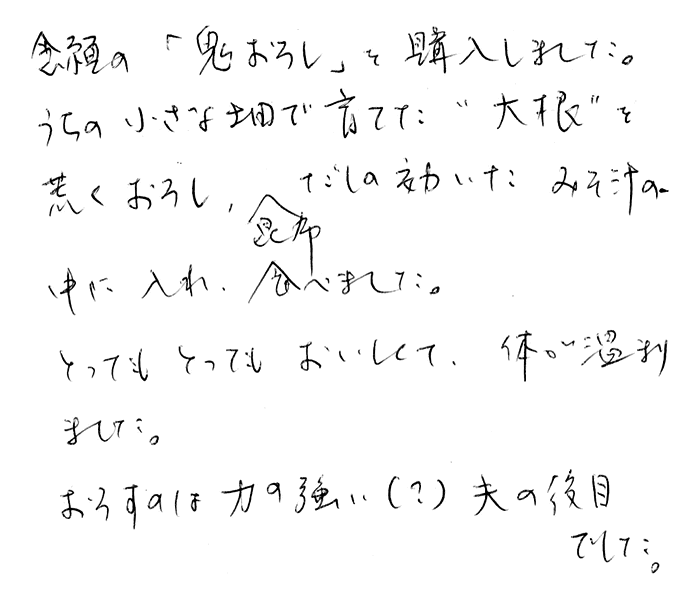 念願の「鬼おろし」を購入しました。
うちの小さな畑で育てた"大根"を
荒くおろし、昆布だしの効いたみそ汁の
中に入れ、食べました。
とってもとってもおいしくて、体が温まり
ました。
おろすのは力の強い(?)夫の役目
でした。